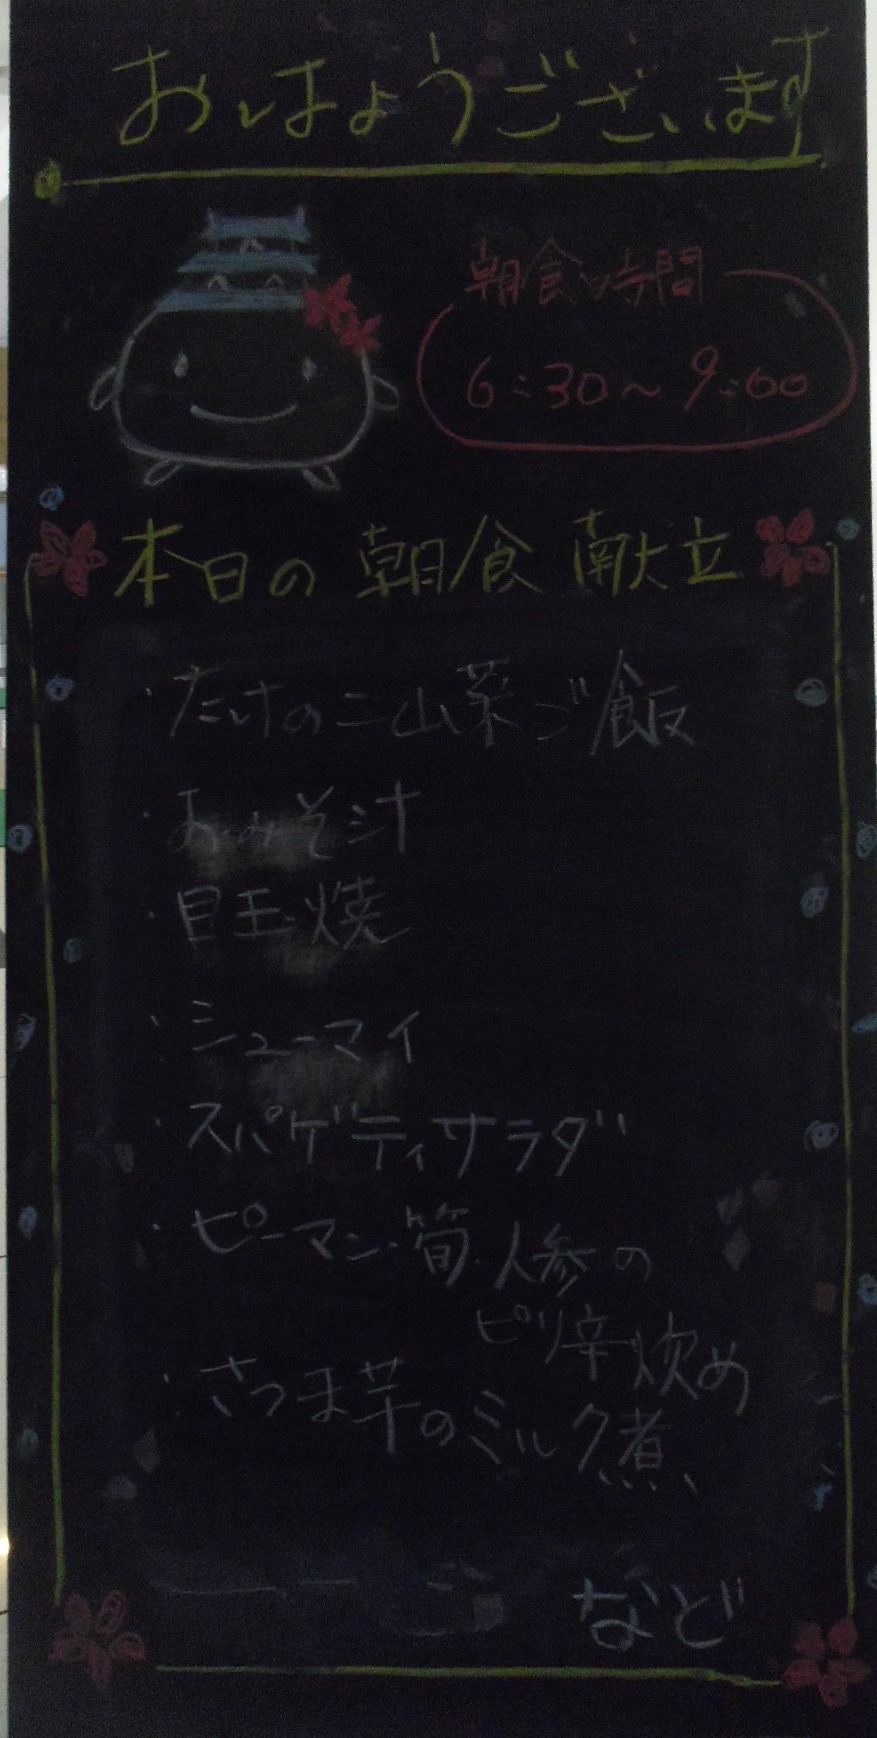 おはようございます
朝食時間
6:30〜9:00
本日の朝食献立
・たけのこ山菜ご飯
・おみそ汁
・目玉焼
・シューマイ
・スパゲティサラダ
・ピーマン・筍・人参の
ピリ辛炒め
・さつま芋のミルク煮
など